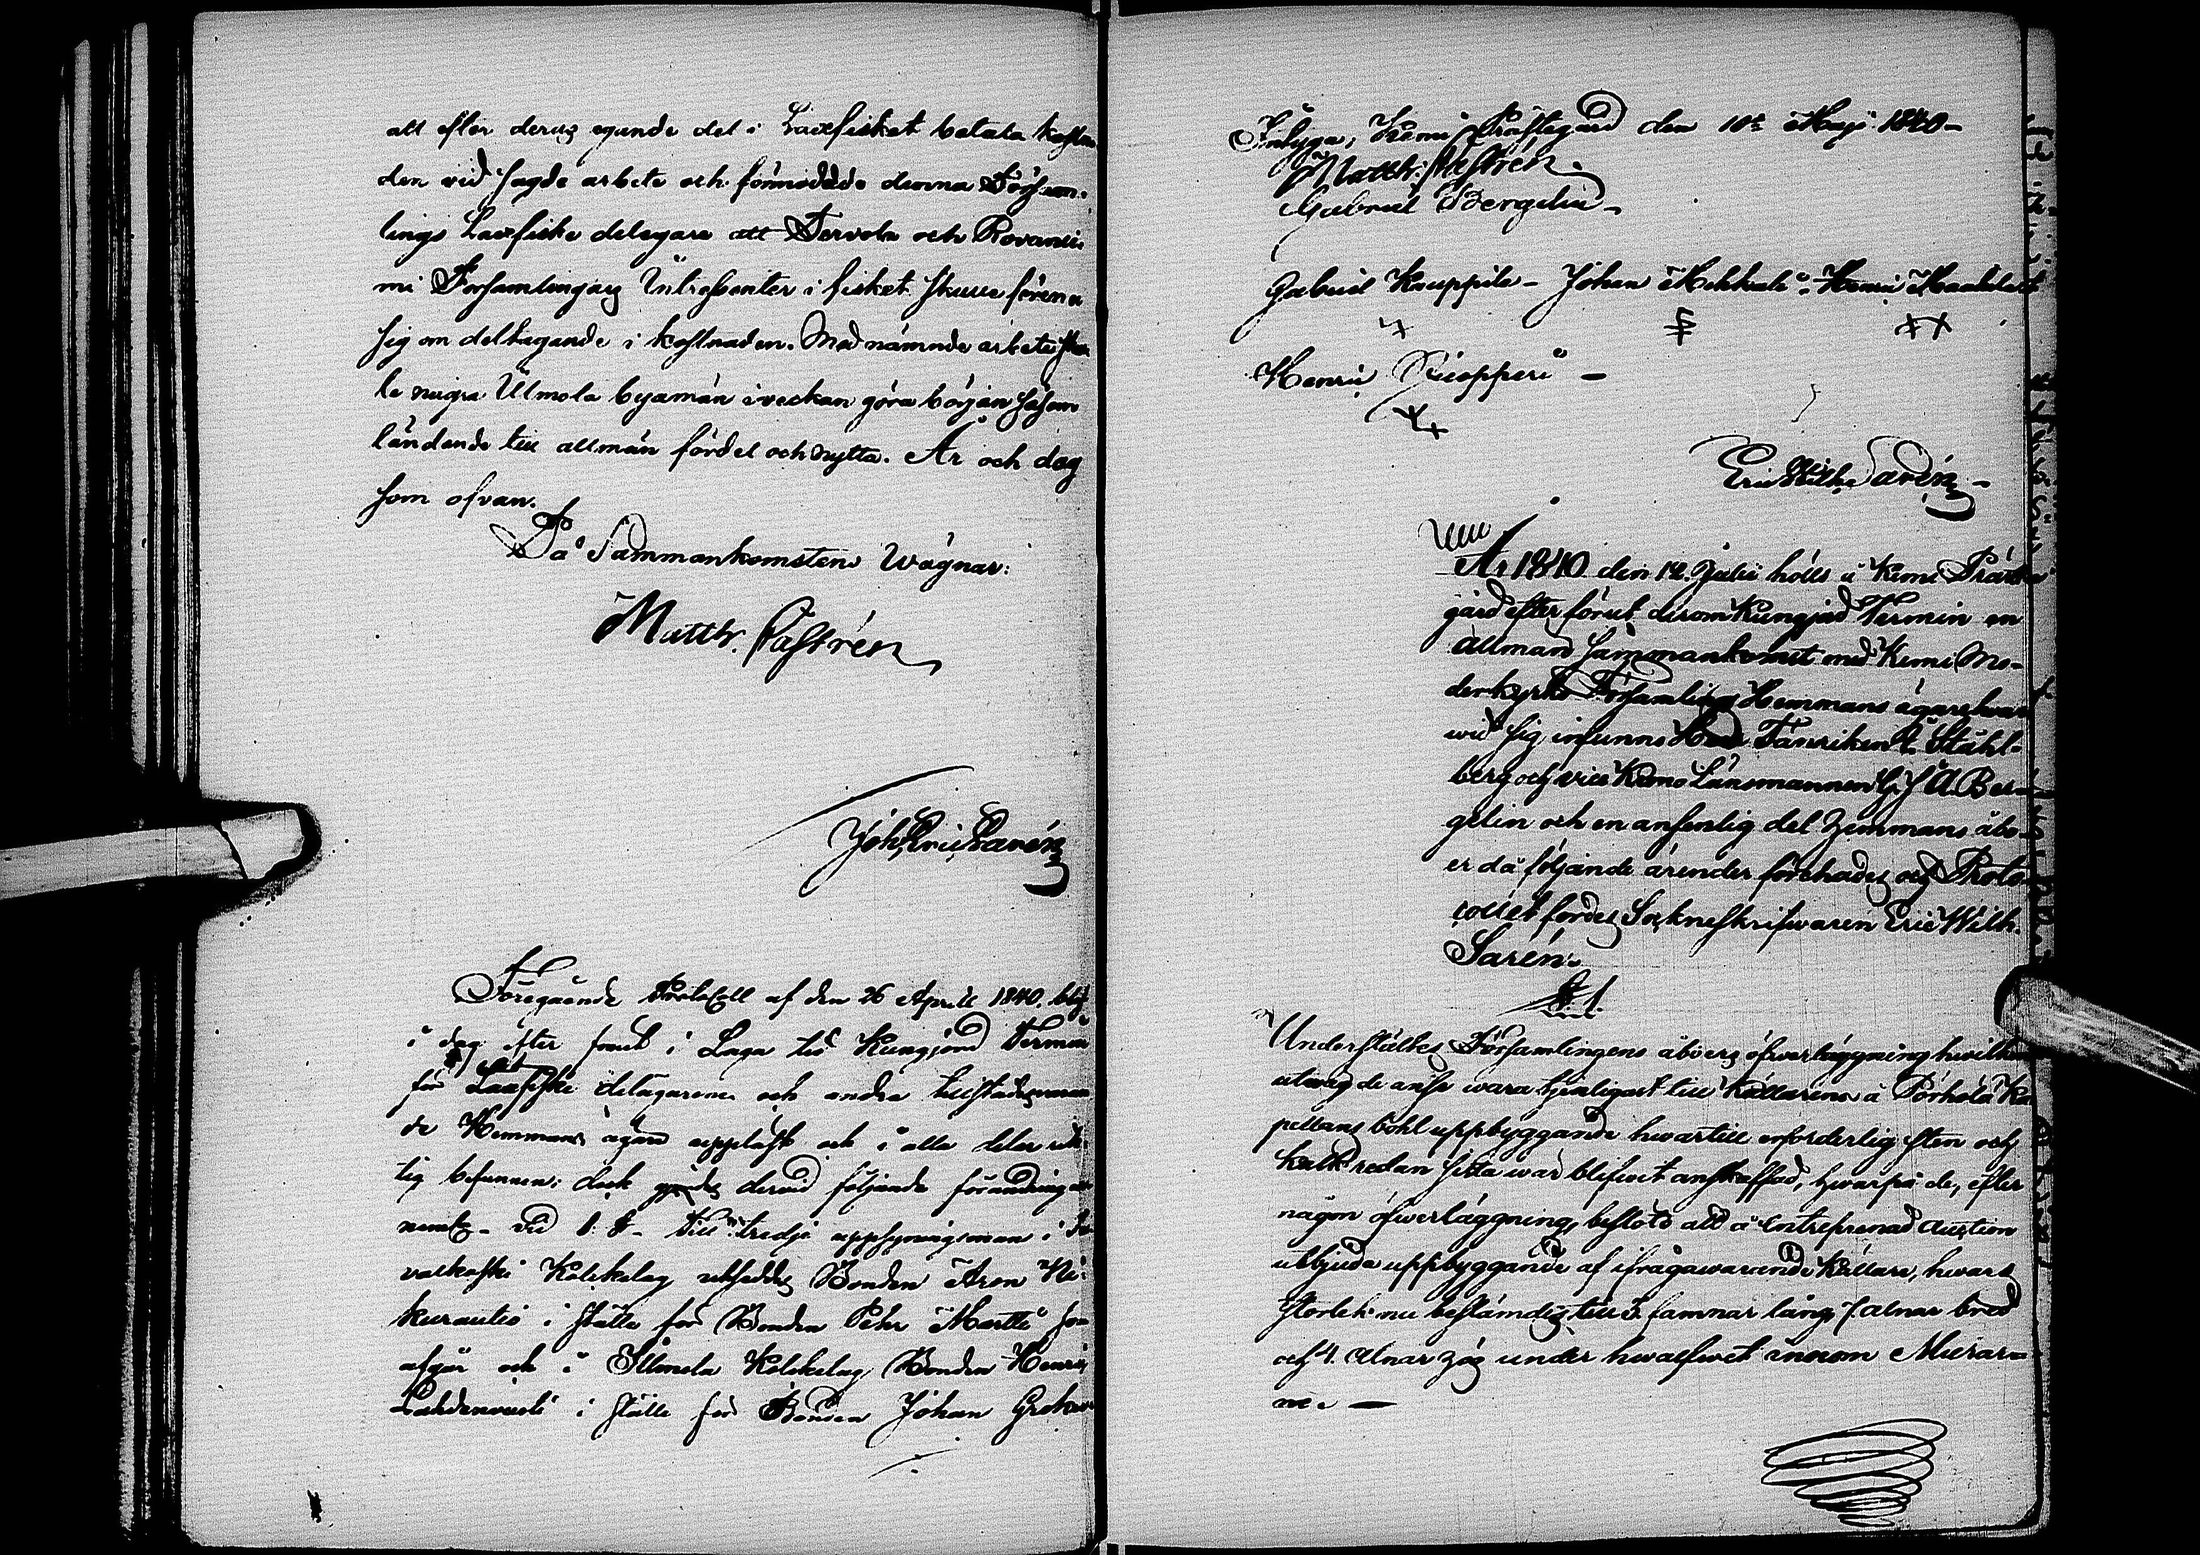 att efter deras egande del i Laxfisket betala kostna
den vid sagde arbete och förmodade denna Försam-
lings Laxfiske delegare att Tervola och Rovanie
mi Församlingars Intressenter i fisket skulle förena
sig om deltagande i kostnaden. Med nämnde arbete skul
le några Ilmola byamän i veckan göra början såsom
ländande till allmän fördel och nytta. År och dag
som ofvan.
På Sammankomstens Wägnar:
Matth. Castrén
Joh. Eric Sarén
Föregående Protocoll af den 26 Aprill 1840. blef
i dag efter förut i Laga tid Kungjord Termin
för Laxfiske delägarene och andra tillstädesvaran
de Hemmans ägare uppläst och i alla delar rik-
tig befunnen; dock gjordes dervid följande förändringar
nemt. vid 1. § till tredje uppsyningsman i
valkoski Kolckelag utseddes Bonden Aron Ki-
kurautio i ställe för Bonden Pehr Martti, som
afgår och i Ilmola Kolckelag Bonden Henric
Lahdenrinti i ställe för Bonden Johan Grek
Intyga; Kemi Prästegård den 10de Maji 1840
Matth. Castrén.
Gabriel Bergelin
Gabriel Kauppila - Johan Mekkala - Henric
Henric
Eric Wilh. Sarén
År 1840 den 12. Julii hölls å Kemi Präste
gård efter förut derom Kungjord Termin en
allmän Sammankomst med Kemi Mo-
derkyrko Församlings Hemmans ägare hvar
wid sig infunno Herr Fänriken Ståhl-
berg och vice Krono Länsmannen G. J. A. Ber-
gelin och en ansenlig del Hemmans åbo-
er då följande ärender förehades och Proto-
collet fördes Sockneskrifwaren Eric Wilh.
Sarén.
§. 1.
Understäldes Församlingens åboers öfwerläggning hwilken
utwäg de anse wara tjenligast till Källarens å Pörhölä Ka
pellans bohl uppbyggande hwartill erforderlig sten och
kalk redan sista war blifwit anskaffad, hwarpå de, efter
någon öfwerläggning, beslöto att å Entreprenad Auction
utbjuda uppbyggande af ifrågawarande Källare, hwars
storlek nu bestämdes till 3. famnar lång, 7. alnar bred
och 4. alnar hög under hwalfwet innom Murar-
ne. —